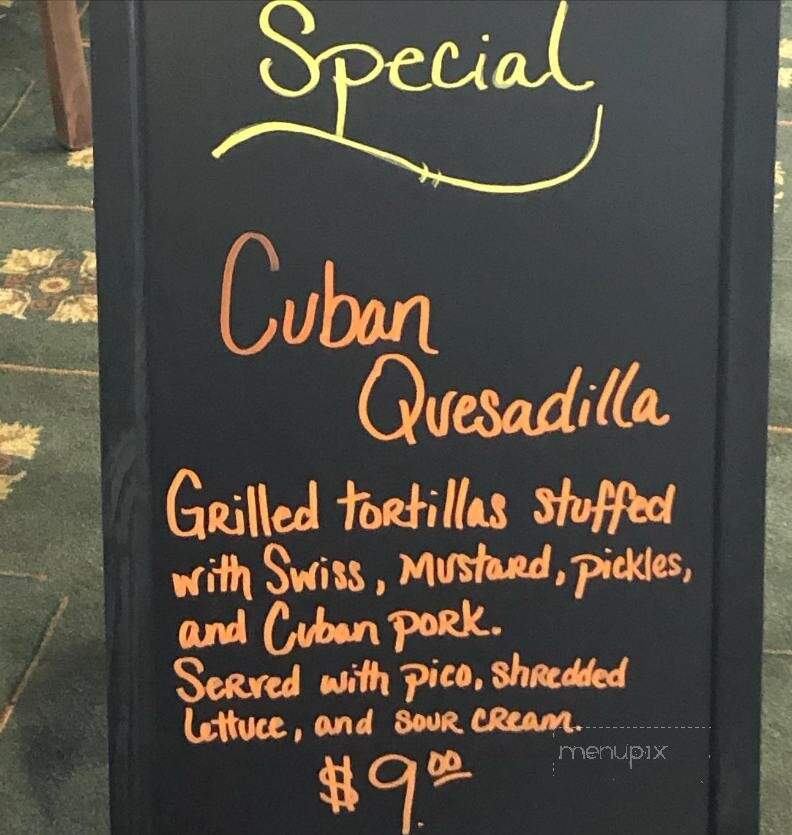 Special
Cuban
Quesadilla
Grilled tortillas stuffed
with Swiss, mustard, pickles,
and Cuban pork.
Served with pico, shredded
lettuce, and sour cream.
$9.00
menupix